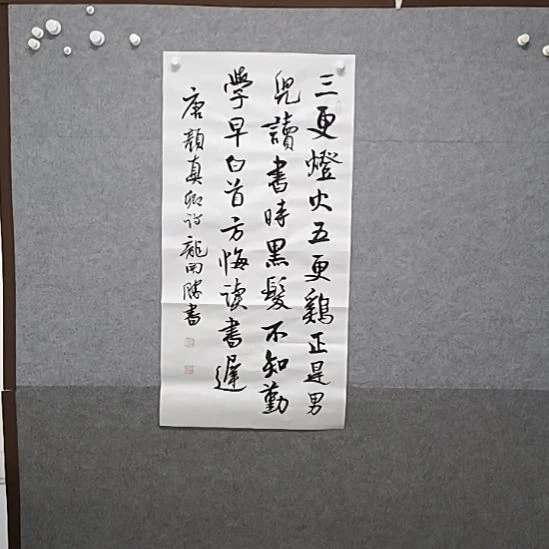 三更燈火五更鷄正是男
兒讀書時黑髮不知勤
學早白首方悔读書遲
唐顏真卿诗龍雨勝書